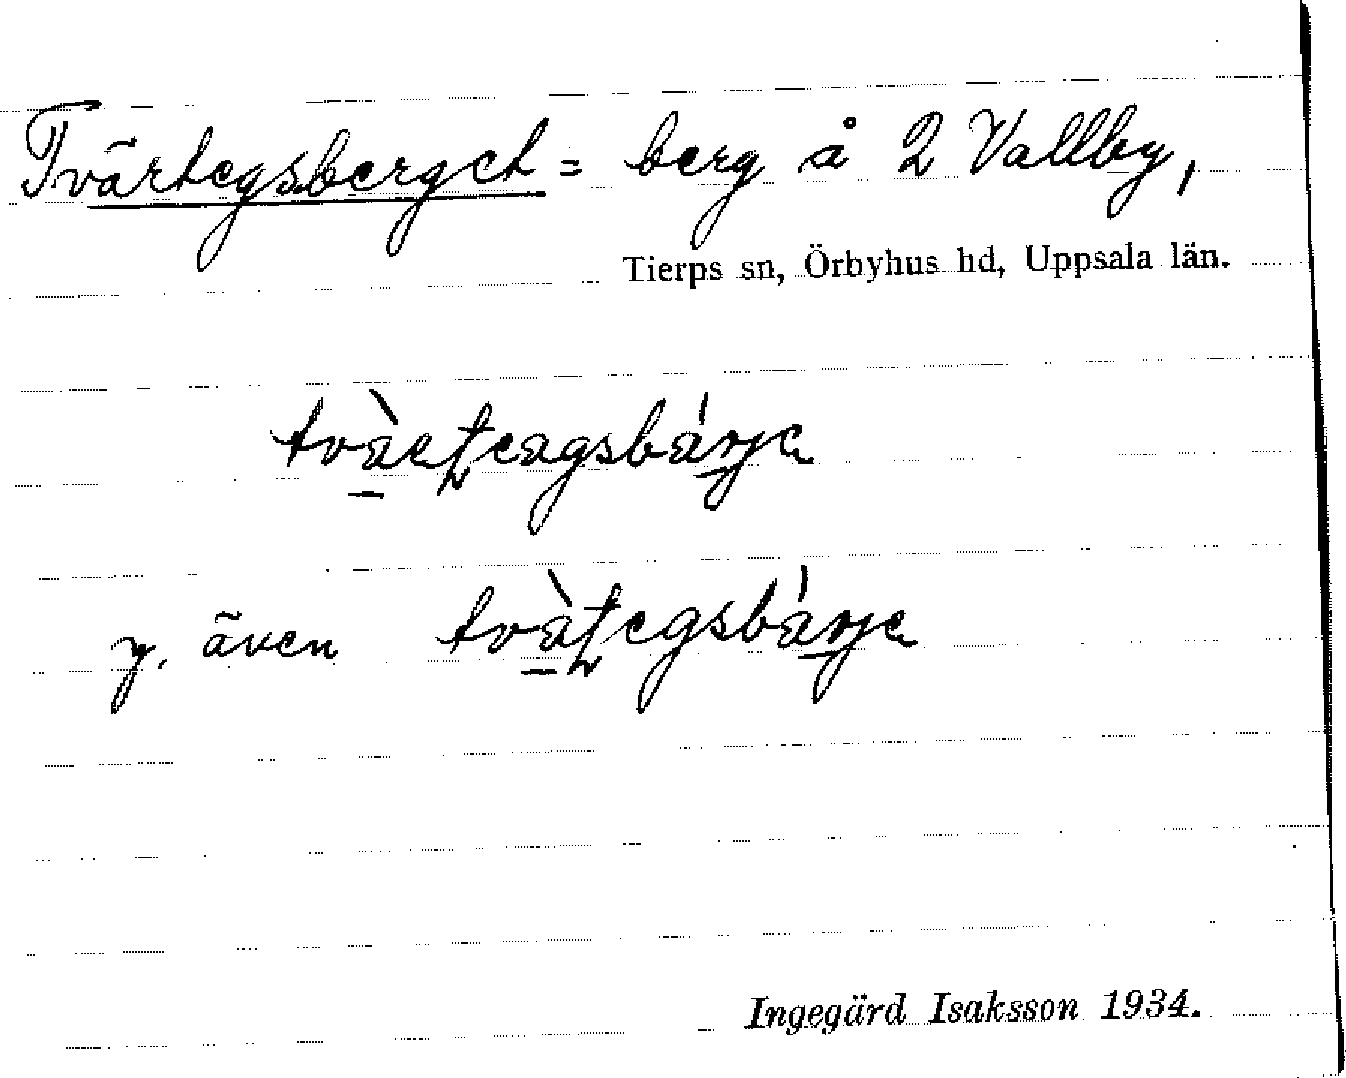 Tvärtegsberget = berg å 2 Vallby,
Tierps sn, Örbyhus hd, Uppsala län.
y. även
Ingegärd Isaksson 1934.